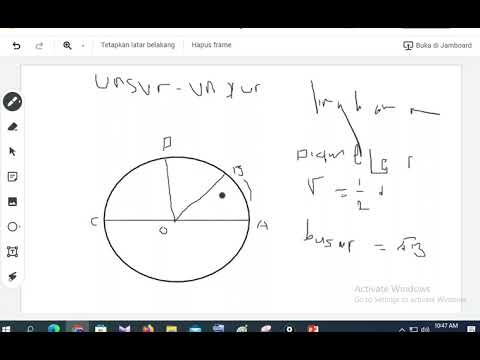 Tetapkan latar belakang Hapus frame
Buka di Jamboard
unsur-unsur
D
B
C
O
A
r = 1/2 d
busur = AB
Activate Windows
Go to Settings to activate Windows.
10:47 AM